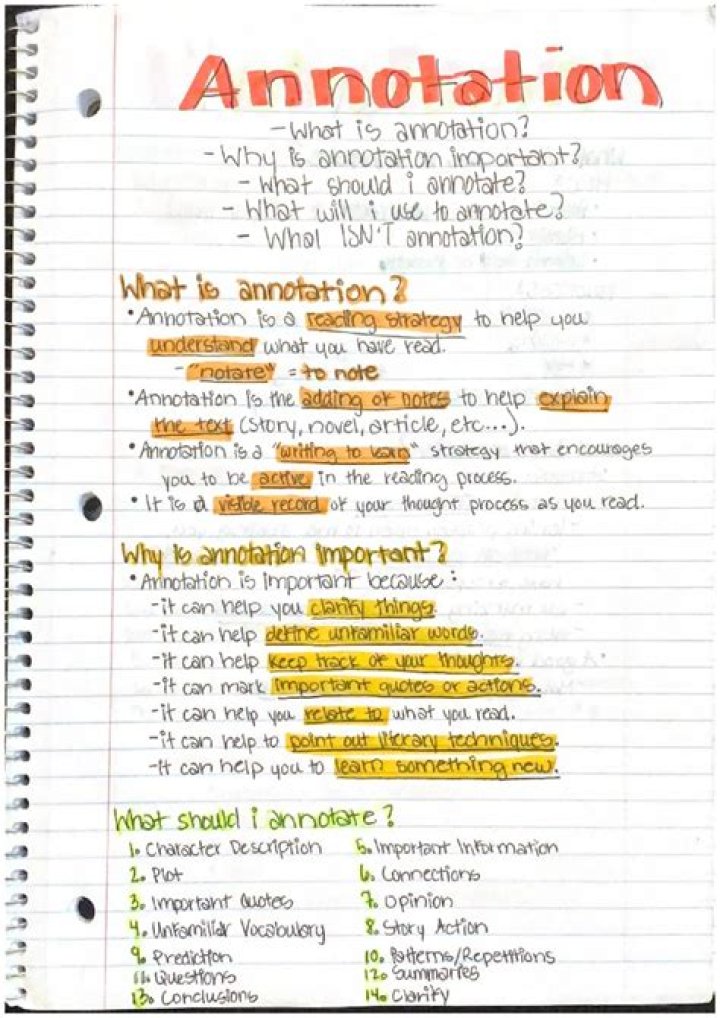 Annotation
- What is annotation?
- Why is annotation important?
- What should i annotate?
- What will i use to annotate?
- What ISN'T annotation?
What is annotation?
• Annotation is a reading strategy to help you
understand what you have read.
- "notare" = to note
• Annotation is the adding of notes to help explain
the text (story, novel, article, etc...).
• Annotation is a "writing to learn" strategy that encourages
you to be active in the reading process.
• It is a visible record of your thought process as you read.
Why is annotation important?
• Annotation is important because:
- it can help you clarify things.
- it can help define unfamiliar words.
- it can help keep track of your thoughts.
- it can mark important quotes or actions.
- it can help you relate to what you read.
- it can help to point out literary techniques.
- It can help you to learn something new.
What should i annotate?
1. Character Description 5. Important Information
2. Plot 6. Connections
3. Important Quotes 7. Opinion
4. Unfamiliar Vocabulary 8. Story Action
9. Prediction 10. Patterns/Repetitions
11. Questions 12. Summaries
13. Conclusions 14. Clarify